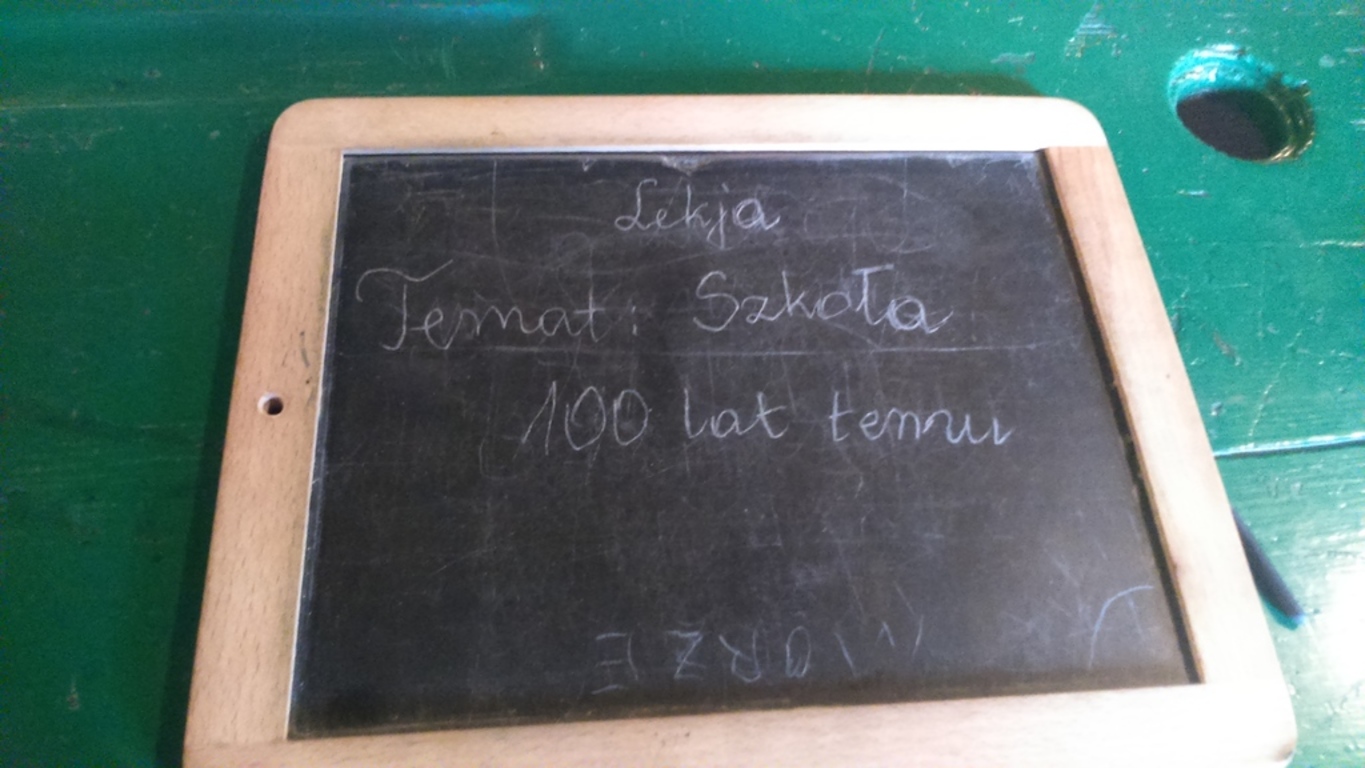 Lekja
Temat: Szkoła
100 lat temu